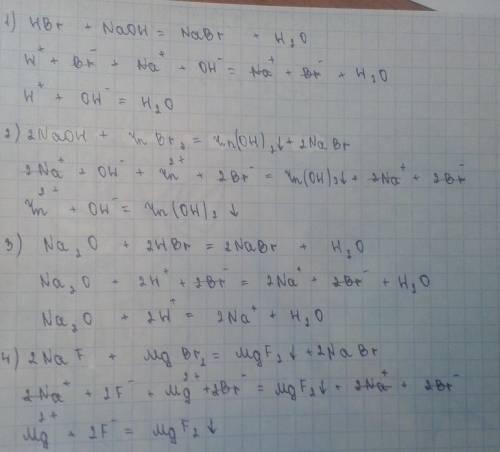 1) HBr + NaOH = NaBr + H₂O
H⁺ + Br⁻ + Na⁺ + OH⁻ = Na⁺ + Br⁻ + H₂O
H⁺ + OH⁻ = H₂O
2) 2NaOH + ZnBr₂ = Zn(OH)₂↓ + 2NaBr
2Na⁺ + OH⁻ + Zn²⁺ + 2Br⁻ = Zn(OH)₂↓ + 2Na⁺ + 2Br⁻
Zn²⁺ + OH⁻ = Zn(OH)₂↓
3) Na₂O + 2HBr = 2NaBr + H₂O
Na₂O + 2H⁺ + 2Br⁻ = 2Na⁺ + 2Br⁻ + H₂O
Na₂O + 2H⁺ = 2Na⁺ + H₂O
4) 2NaF + MgBr₂ = MgF₂↓ + 2NaBr
2Na⁺ + 2F⁻ + Mg²⁺ + 2Br⁻ = MgF₂↓ + 2Na⁺ + 2Br⁻
Mg²⁺ + 2F⁻ = MgF₂↓